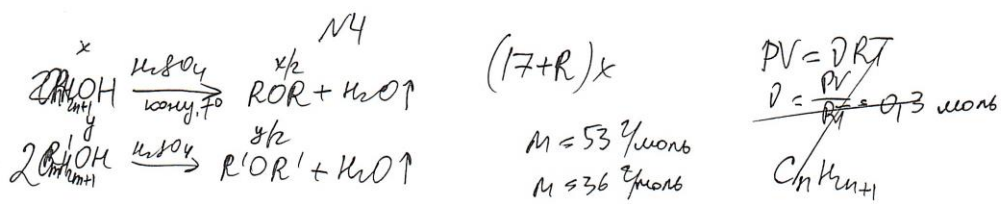 N4
x
2ROH H₂SO₄ конц, t° → x/2 ROR + H₂O↑
y
2R'OH H₂SO₄ → y/2 R'OR' + H₂O↑
(17+R)x
M = 53 г/моль
M = 36 г/моль
PV = νRT
ν = PV/RT = 0,3 моль
CnH2n+1